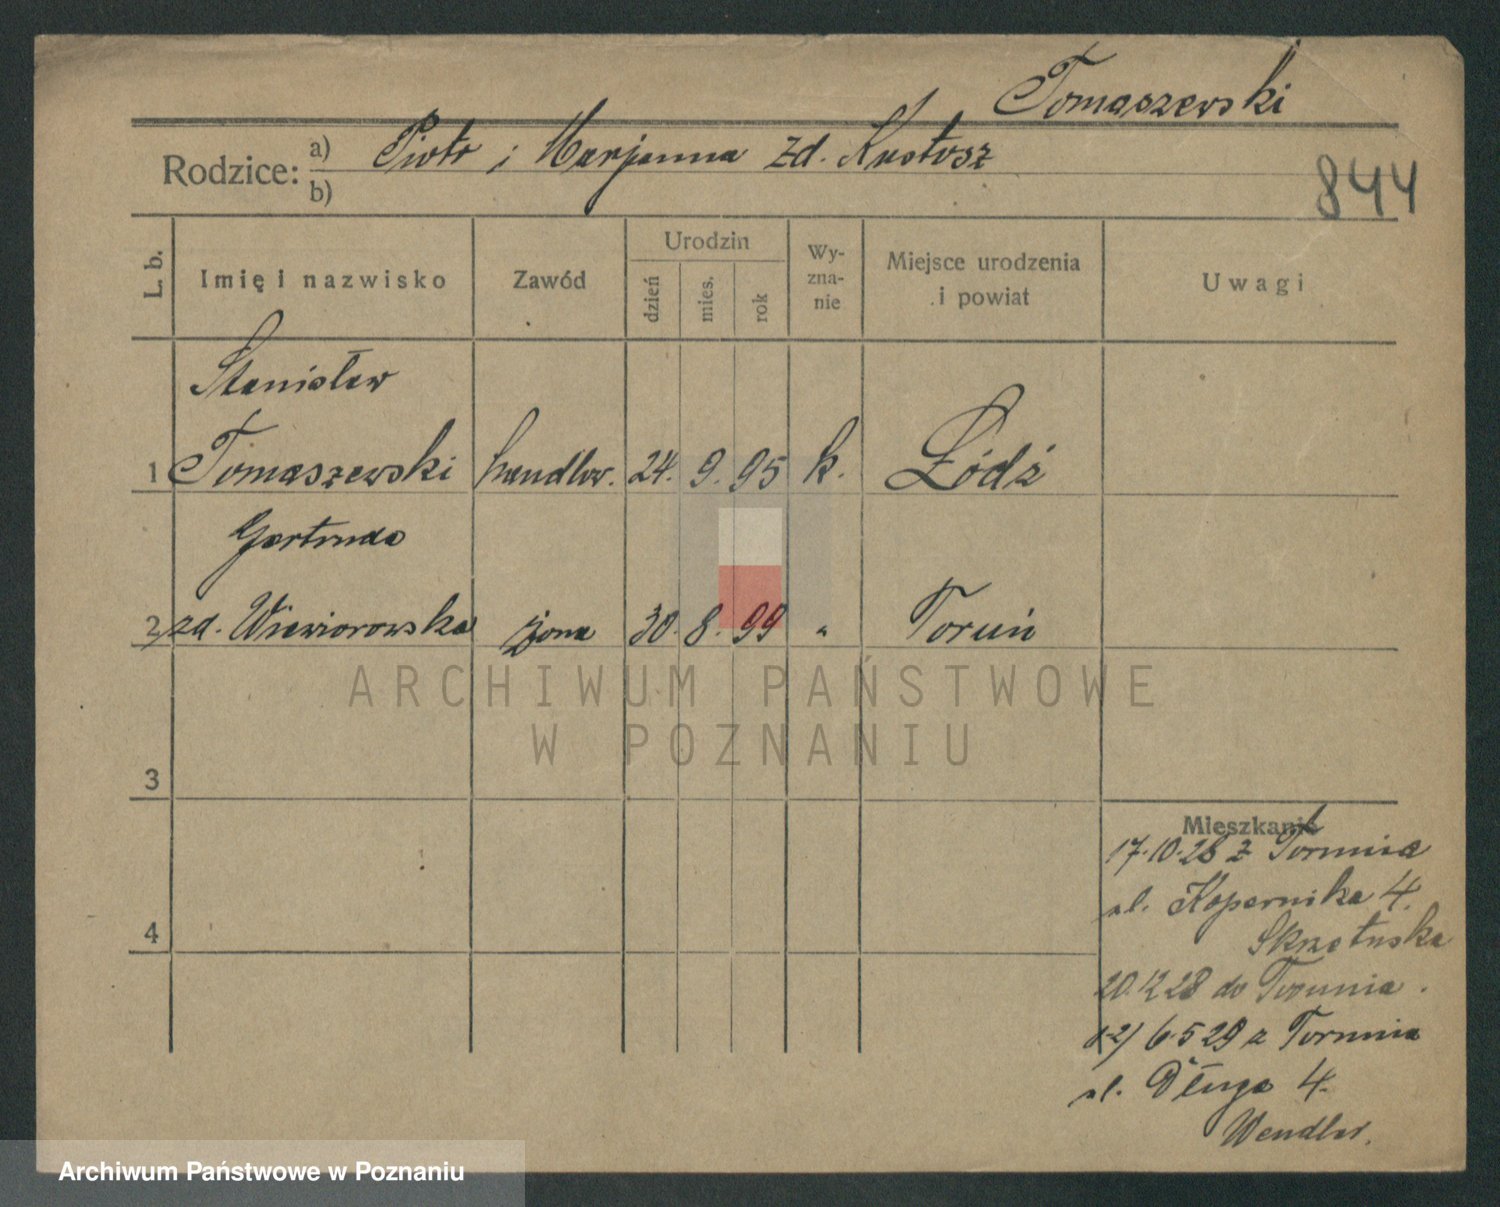 Tomaszewski
Rodzice: a) Piotr i Marjanna zd. Kustosz
b)
844
L. b.
Imię i nazwisko
Zawód
Urodzin
dzień
mies.
rok
Wy-
zna-
nie
Miejsce urodzenia
i powiat
Uwagi
Stanisław
1 Tomaszewski handlow. 24. 9. 95 k. Łódź
Gertruda
2 zd. Wiewiorowska żona 30. 8. 99 " Toruń
3
4
Mieszkanie
17.10.28 z Torunia
ul. Kopernika 4.
Skrzetuska
20.12 28 do Torunia.
1-2) 6.5 29 z Torunia
ul. Długa 4.
Wendler.
ARCHIWUM PAŃSTWOWE
W POZNANIU
Archiwum Państwowe w Poznaniu